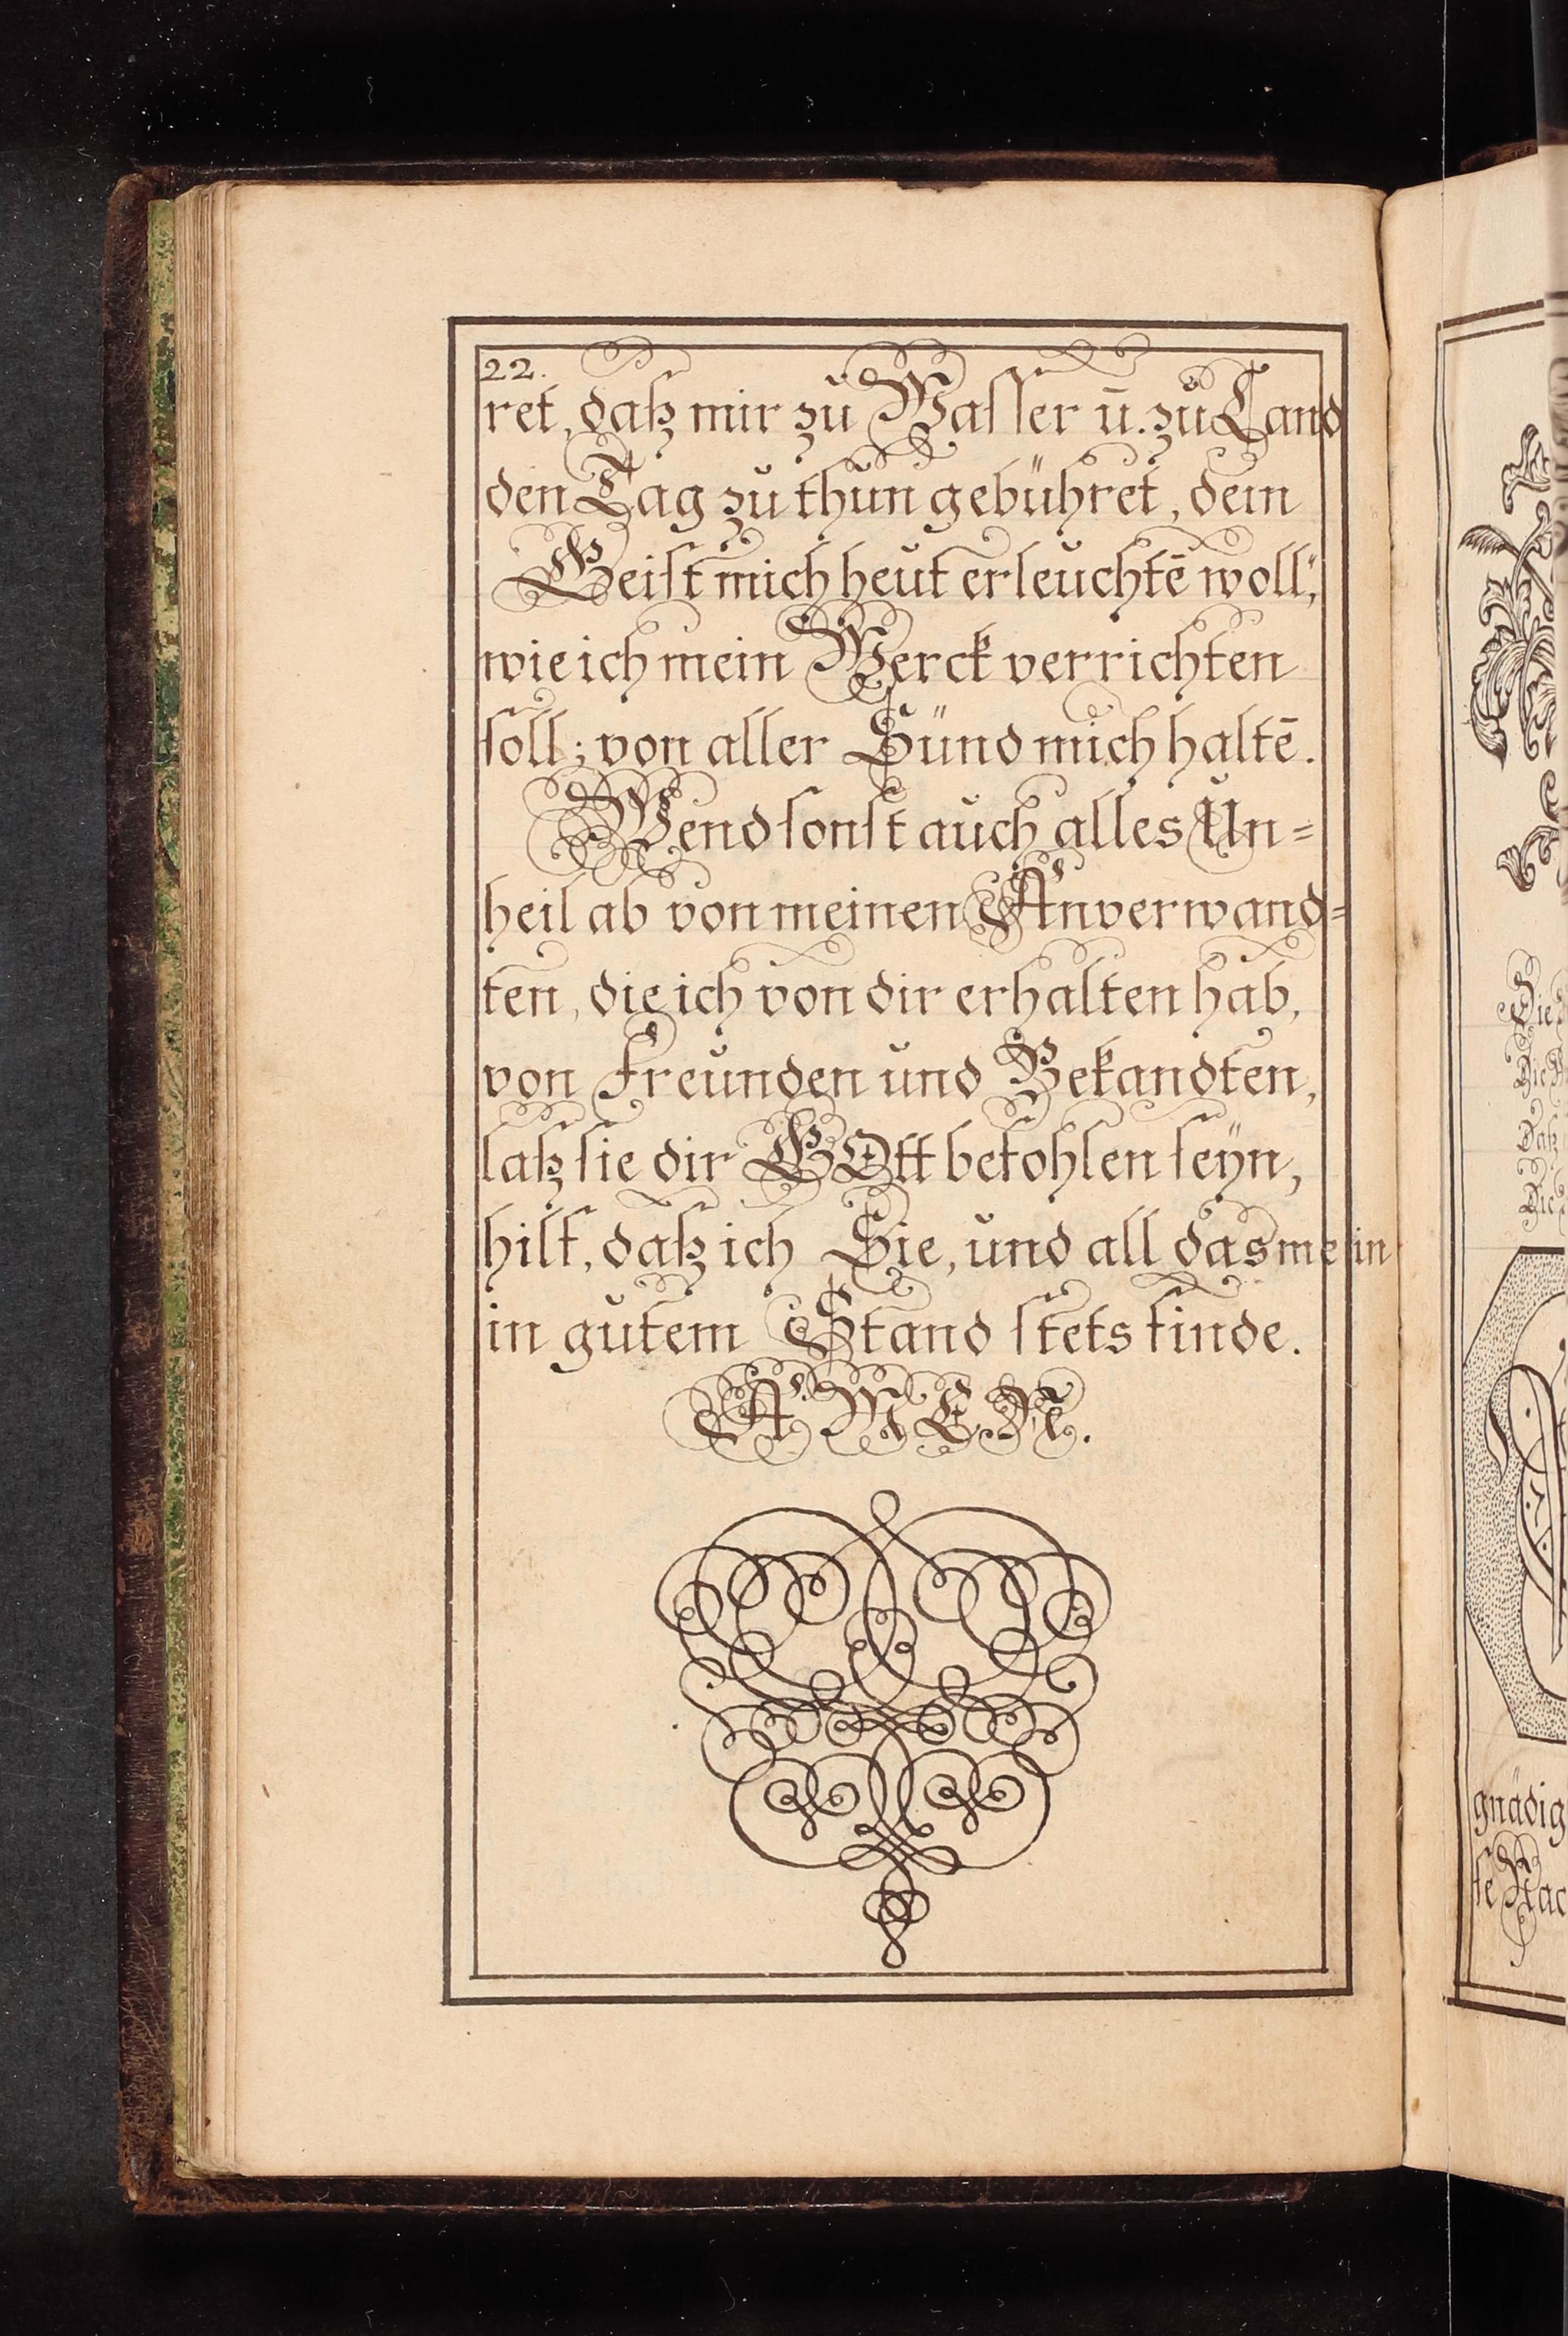 22.
ret, daß mir zu Wasser ū. zu Land
den Tag zu thun gebühret, dein
Geist mich heut erleuchtē woll',
wie ich mein Werck verrichten
soll; von aller Sünd mich haltē.
Wend sonst auch alles Un=
heil ab von meinen Anverwand=
ten, die ich von dir erhalten hab,
von Freunden und Bekandten,
laß sie dir GOtt befohlen seyn,
hilf, daß ich Sie, und all das mein
in gutem Stand stets finde.
AMEN.
Die
Daß
Die
gnädig
se Nac